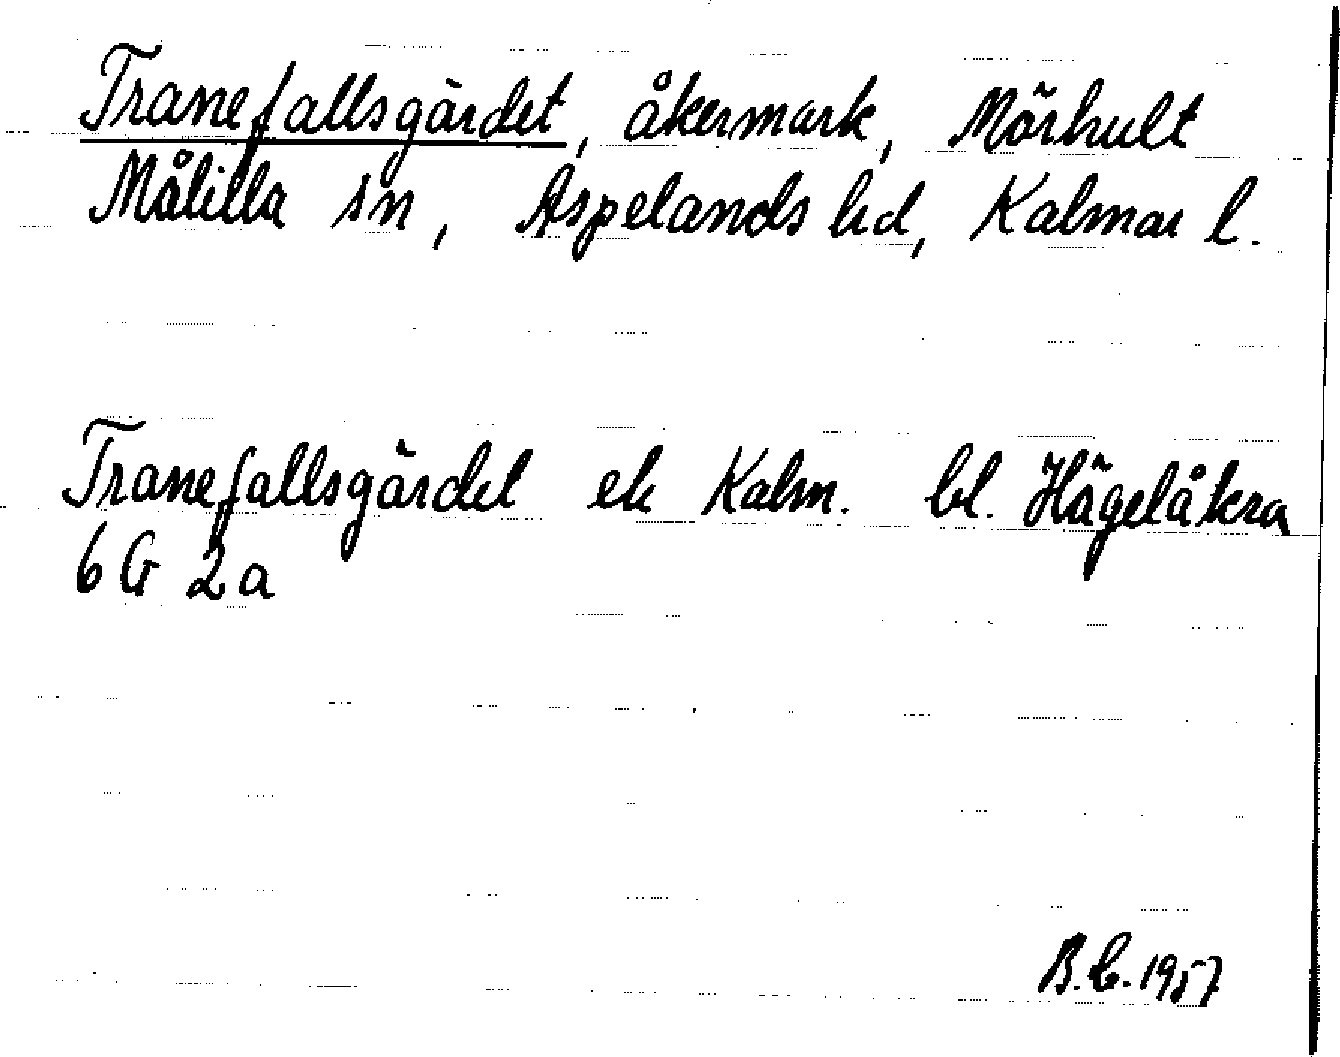 Tranefallsgärdet, åkermark, Mörhult
Målilla sn, Aspelands hd, Kalmar l.
Tranefallsgärdet ek Kalm. bl. Hägelåkra
6 G 2a
B.C. 1957